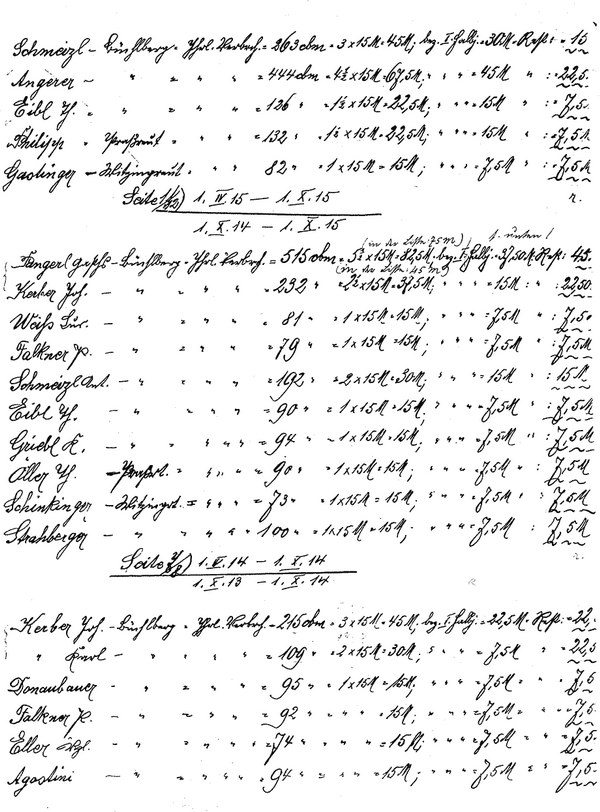 Schmeizl - Büchlberg - Jhrl. Verbrch. = 263 cbm = 3 x 15 M = 45 M; bez. I. Halbj. = 30 M - Rest : = 15
Angerer - " = " " = 444 cbm = 4½ x 15 M = 67,5 M; " " = 45 M " : = 22,5
Eibl Th. = " = " " = 126 " = 1½ x 15 M = 22,5 M; " " " = 15 M " : = 7,5
Philipp " Praßreut " " " = 132 " = 1½ x 15 M = 22,5 M; " " = 15 M " : = 7,5 M
Gastinger - Witzingreut " " 82 " = 1 x 15 M = 15 M; " " = 7,5 M " : = 7,5 M
Seite 1. IV. 15 — 1. X. 15
1. X. 14 — 1. X. 15
(in der Liste 75 M) s. unten!
Fangerl - Büchlberg - Jhrl. Verbrch. = 515 cbm = 5½ x 15 M = 82,5 M. bez. I. Halbj. = 37,50 M Rest : 45.
(in der Liste 45 M)
Kerber Joh. - " - " " = 232 " = 2½ x 15 M = 37,5 M; " " = 15 M " : 22,50
Weiß Lur. - " - " " = 81 " = 1 x 15 M = 15 M; " " = 7,5 M " : 7,50
Falkner P. - " " " " = 79 " = 1 x 15 M = 15 M; " " = 7,5 M " : 7,5 M
Schmeizl Ant. - " - " " = 192 " = 2 x 15 M = 30 M; " " = 15 M " : 15 M
Eibl Th. - " - " " = 90 " = 1 x 15 M = 15 M. " " = 7,5 M " : 7,5 M
Griebl K. - " " " " = 94 " - 1 x 15 M = 15 M; " " = 7,5 M " : 7,5 M
Aller Th. - Praßrt. = " " " = 90 " = 1 x 15 M = 15 M; " " = 7,5 M " : 7,5 M
Schinkinger - Witzingrt. = " " " = 73 " = 1 x 15 M = 15 M; " " = 7,5 M " : 7,5 M
Strahberger - " " " " = 100 " = 1 x 15 M = 15 M; " " = 7,5 M : 7,5 M
Seite 1. IV. 14 — 1. X. 14
1. X. 13 — 1. X. 14
Kerber Joh. - Büchlberg = Jhrl. Verbrch. = 215 cbm = 3 x 15 M = 45 M, bez. I. Halbj. = 22,5 M - Rest : = 22,
" Karl - " " " 109 " = 2 x 15 M = 30 M; " " = 7,5 M " = 22,5
Donaubauer - " " " " = 95 " = 1 x 15 M = 15 M; " " = 7,5 M " = 7,5
Falkner P. - " " " " = 92 " " " " 15 M; " " = 7,5 M " " : 7,5
Eller - " " " " = 74 " " " = 15 M; " " = 7,5 M " = : 7,5
Agostini - " " " " = 94 " = " " = 15 M; " " = 7,5 M " = : 7,5